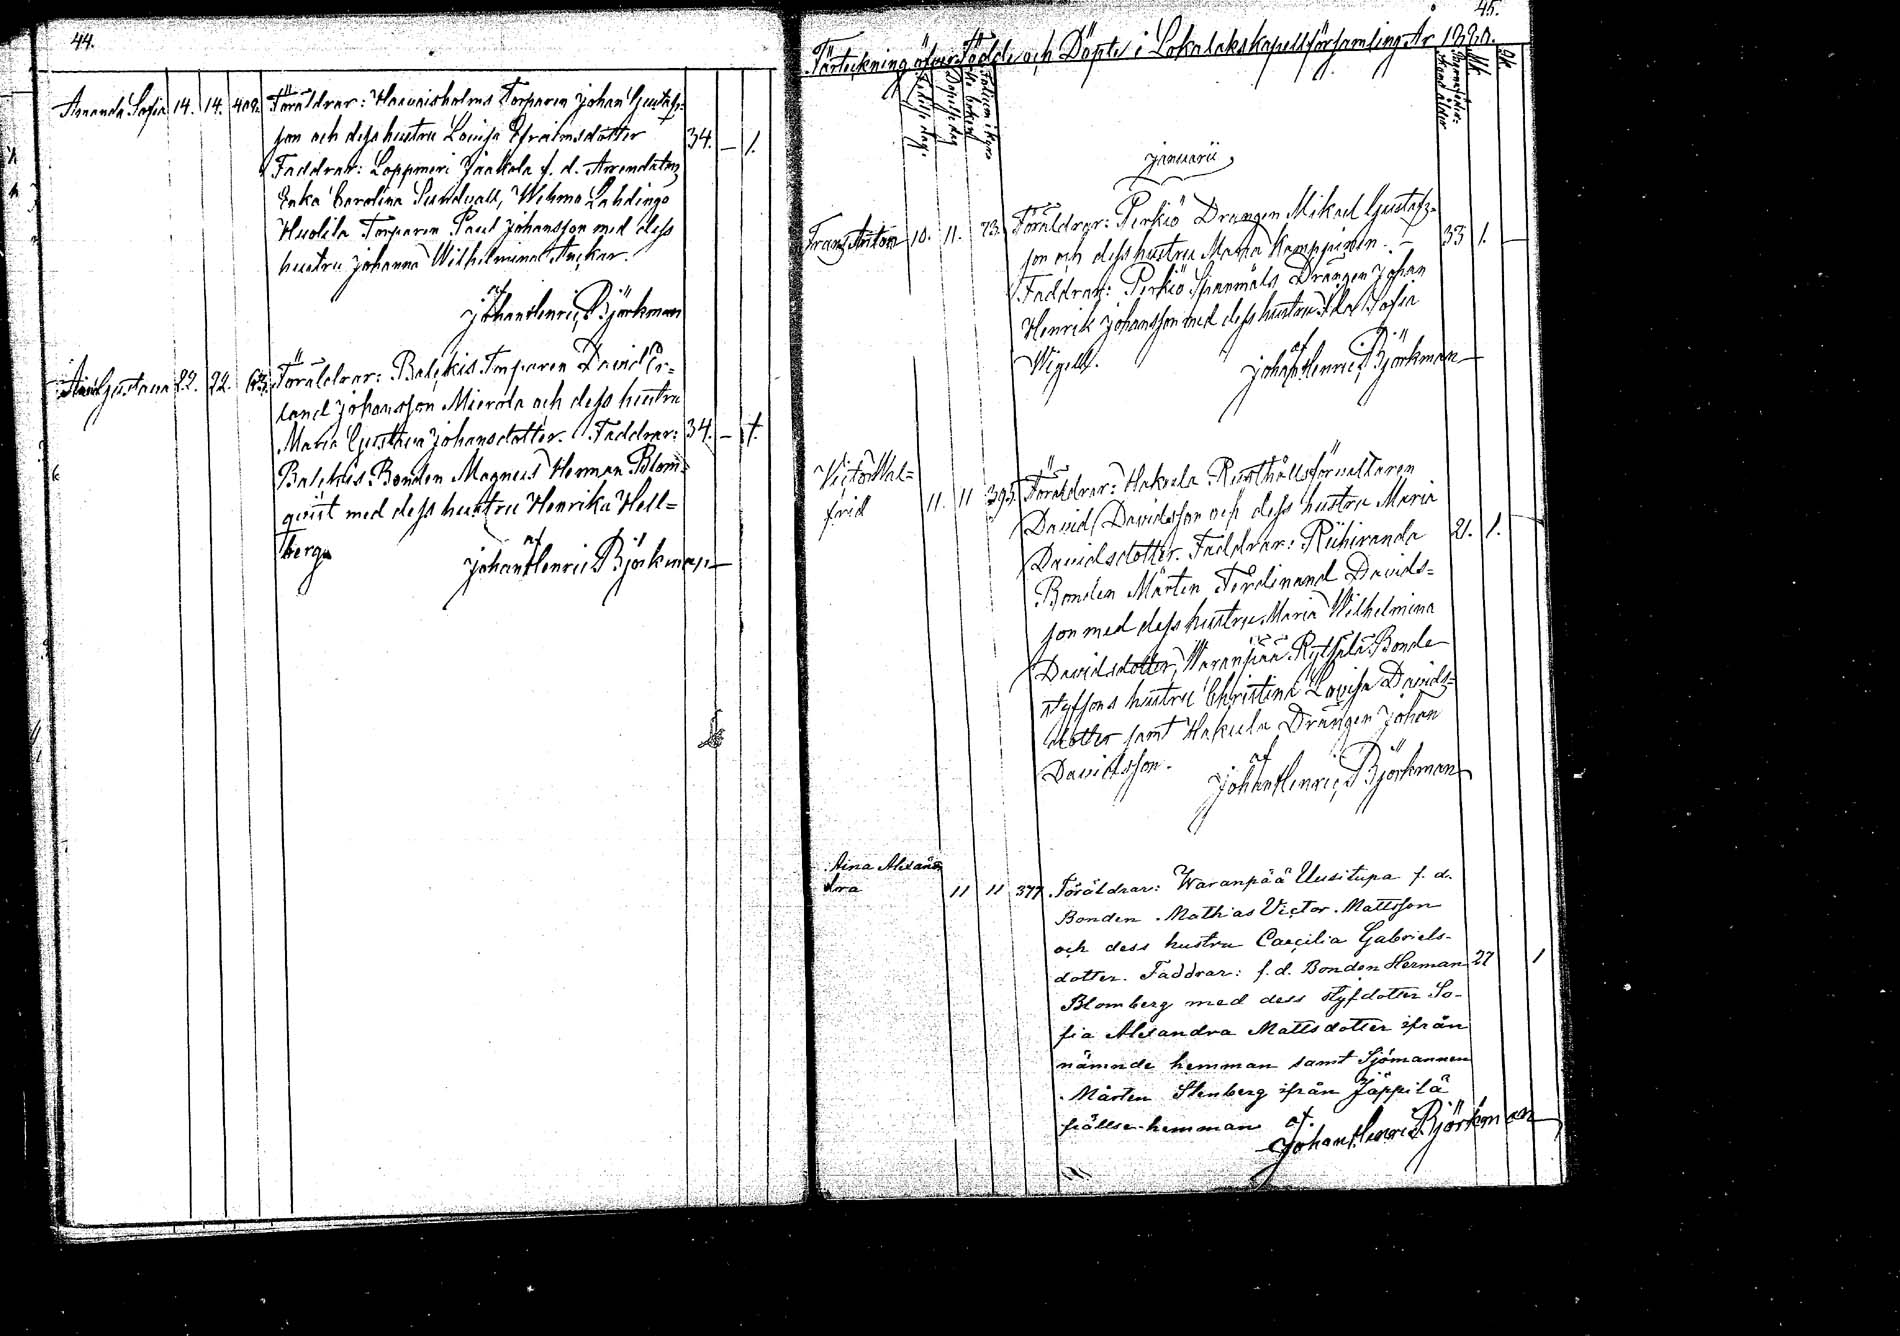 44.
Amanda Sofia 14. 14. 408. Föräldrar: Haavaisholms Torparen Johan Gustafs-
son och dess hustru Lovisa Efraimsdotter 34. – 1.
Faddrar: Loppmeri Jaakola f. d. Arrendatorn
Enka Carolina Sundvall, Wehmo Lahdingo
Huolila Torparen Paul Johansson med dess
hustru Johanna Wilhelmina Anckar.
af
Johan Henric Björkman
Gustava 22. 22. 63. Föräldrar: Balckis Torparen David Er=
land Johansson Mierola och dess hustru
Maria Gustava Johansdotter. Faddrar: 34. – 1.
Balckis Bonden Magnus Herman Blom=
qvist med dess hustru Henrika Hell=
berg
af
Johan Henric Björkman
45.
Förteckning öfver Födde och Döpte i Lokalaks kapellförsamling År 1880.
Födelse dag.
Döpelse dag
Folium i Kyrko boken
Barnaföder-skans ålder
Mk
Qk
Januarii
Franz Anton 10. 11. 73. Föräldrar: Perkiö Drängen Mikael Gustafs=
son och dess hustru Maria Kamppinen. – 33 1. –
Faddrar: Perkiö Spannmåls Drängen Johan
Henrik Johansson med dess hustru Ida Sofia
Wigell.
af
Johan Henric Björkman
Victor Wal=
frid 11. 11 395. Föräldrar: Hakula Rusthållsförvaltaren
David Davidsson och dess hustru Maria
Davidsdotter. Faddrar: Riihiranda 21. 1. –
Bonden Mårten Ferdinand Davids=
son med dess hustru Maria Wilhelmina
Davidsdotter, Waranpää Rytsälä Bonde
styfsons hustru Christina Lovisa Davids=
dotter samt Hakula Drängen Johan
Davidsson.
af
Johan Henric Björkman
Aina Alexan
dra 11 11 377. Föräldrar: Waranpää Uusitupa f. d.
Bonden Mathias Victor Mattsson
och dess hustru Caecilia Gabriels-
dotter. Faddrar: f. d. Bonden Herman 27 1
Blomberg med dess styfdotter So-
fia Alexandra Mattsdotter ifrån
nämnde hemman samt Sjömannen
Mårten Stenberg ifrån Jäppilä
frälse-hemman af.
Johan Henric Björkman